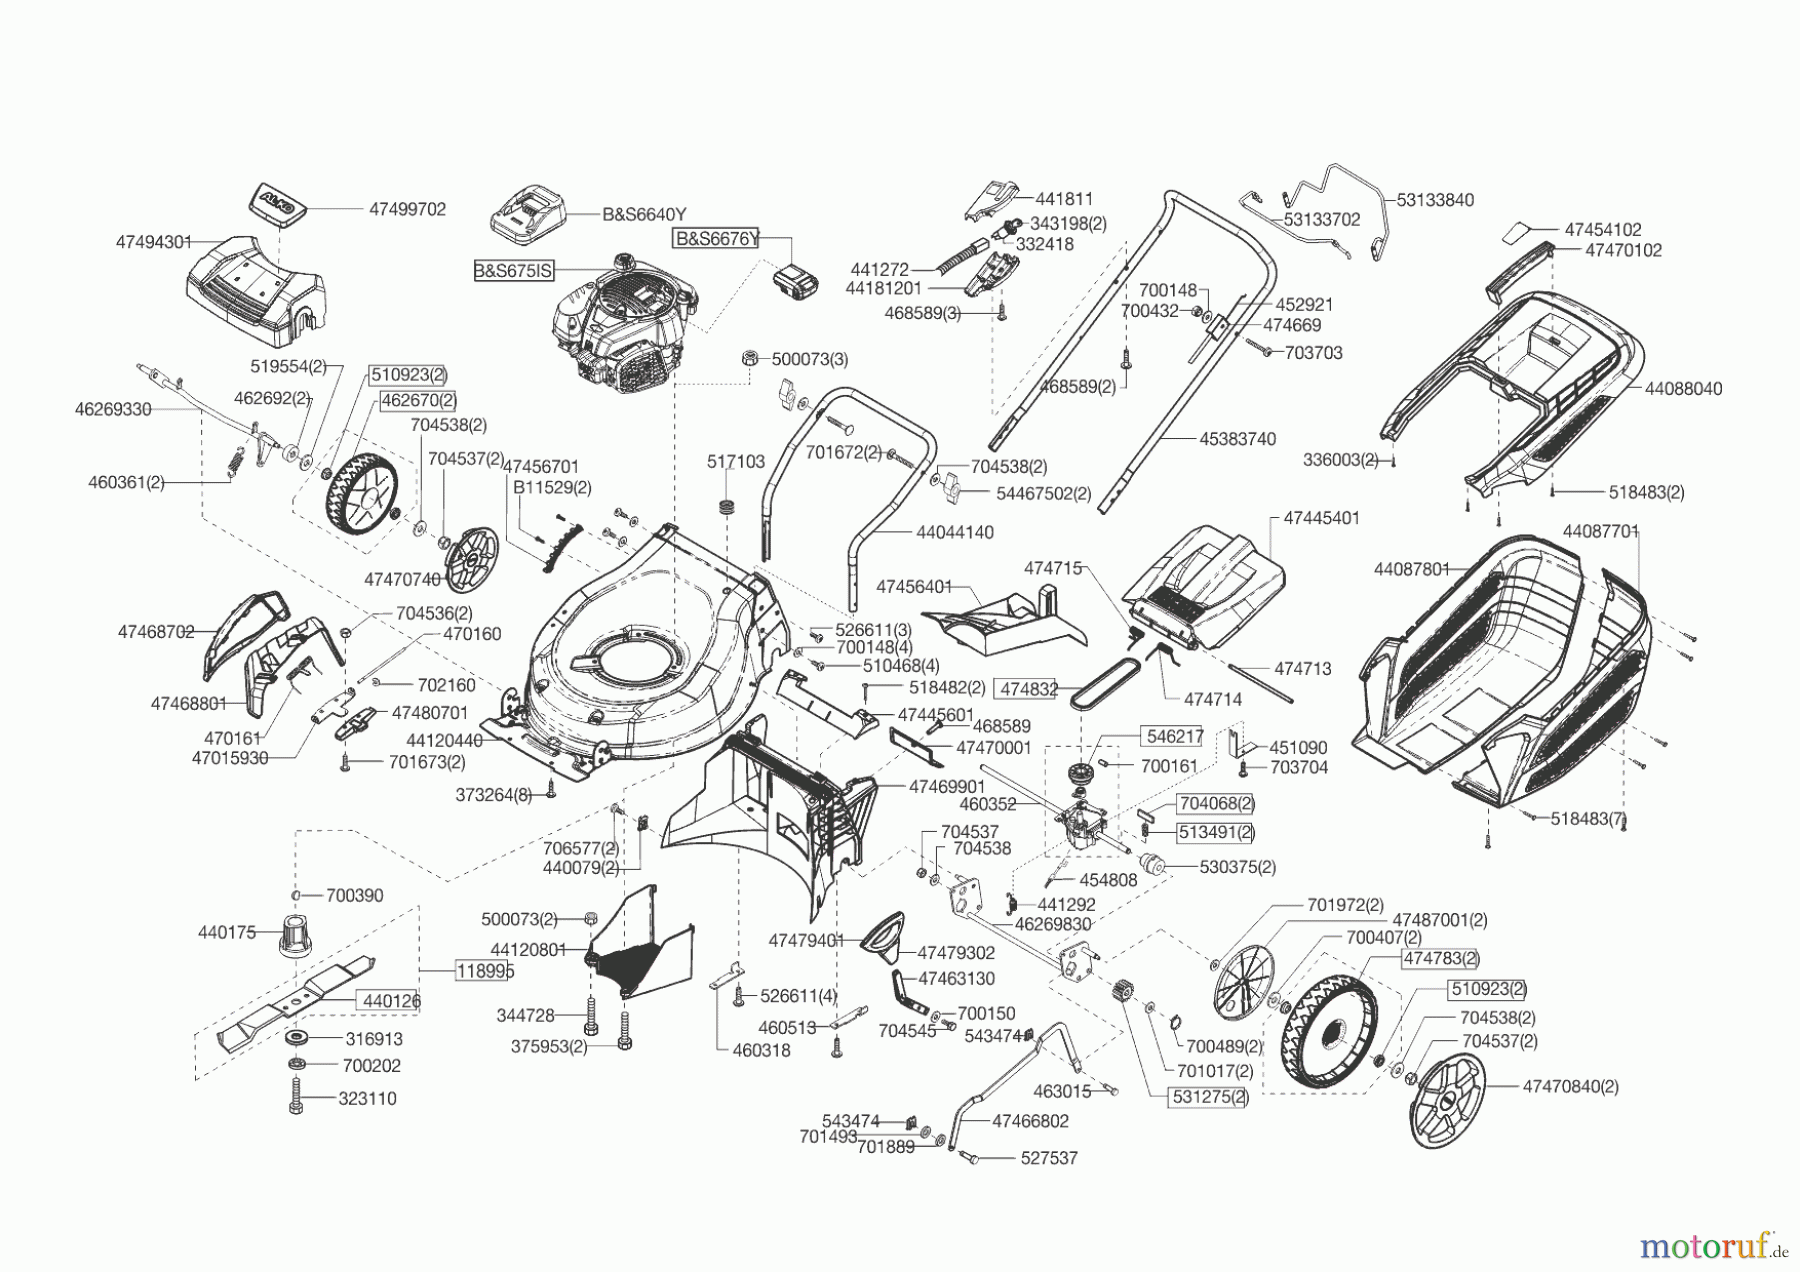 53133840
441811
B&S6640Y
47499702
343198(2)
53133702
47454102
B&S6676Y
332418
47494301
47470102
441272
B&S675IS
44181201
700148
452921
700432
468589(3)
474669
703703
500073(3)
519554(2)
510923(2)
468589(2)
44088040
462692(2)
462670(2)
46269330
704538(2)
45383740
701672(2)
704537(2)
517103
336003(2)
47456701
704538(2)
460361(2)
B11529(2)
54467502(2)
518483(2)
47445401
44044140
44087701
474715
44087801
47470740
47456401
704536(2)
47468702
470160
526611(3)
700148(4)
510468(4)
474713
702160
518482(2)
474832
47468801
474714
47480701
47445601
468589
470161
44120440
546217
47470001
451090
47015930
701673(2)
700161
703704
47469901
373264(8)
460352
704068(2)
518483(7)
704537
513491(2)
706577(2)
704538
440079(2)
530375(2)
454808
700390
441292
701972(2)
500073(2)
46269830
47487001(2)
440175
47479401
700407(2)
44120801
47479302
474783(2)
118995
47463130
510923(2)
440126
526611(4)
344728
700150
704538(2)
460513
704545
543474
316913
375953(2)
460318
700489(2)
704537(2)
700202
701017(2)
47470840(2)
463015
531275(2)
323110
543474
47466802
701493
701889
527537
AL-KO
motoruf.de